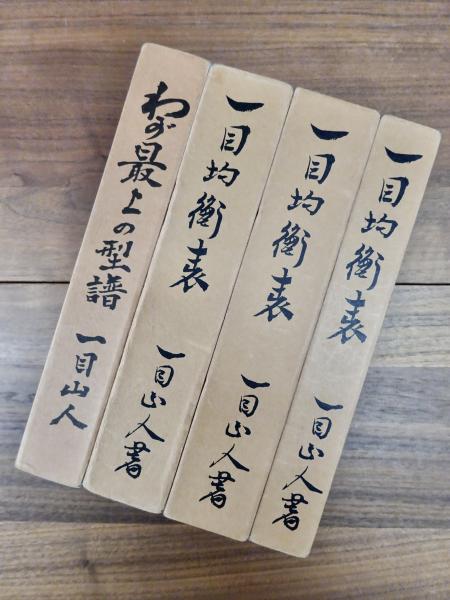 わが最上の型譜
一目山人
一目均衡表
一目山人書
一目均衡表
一目山人書
一目均衡表
一目山人書